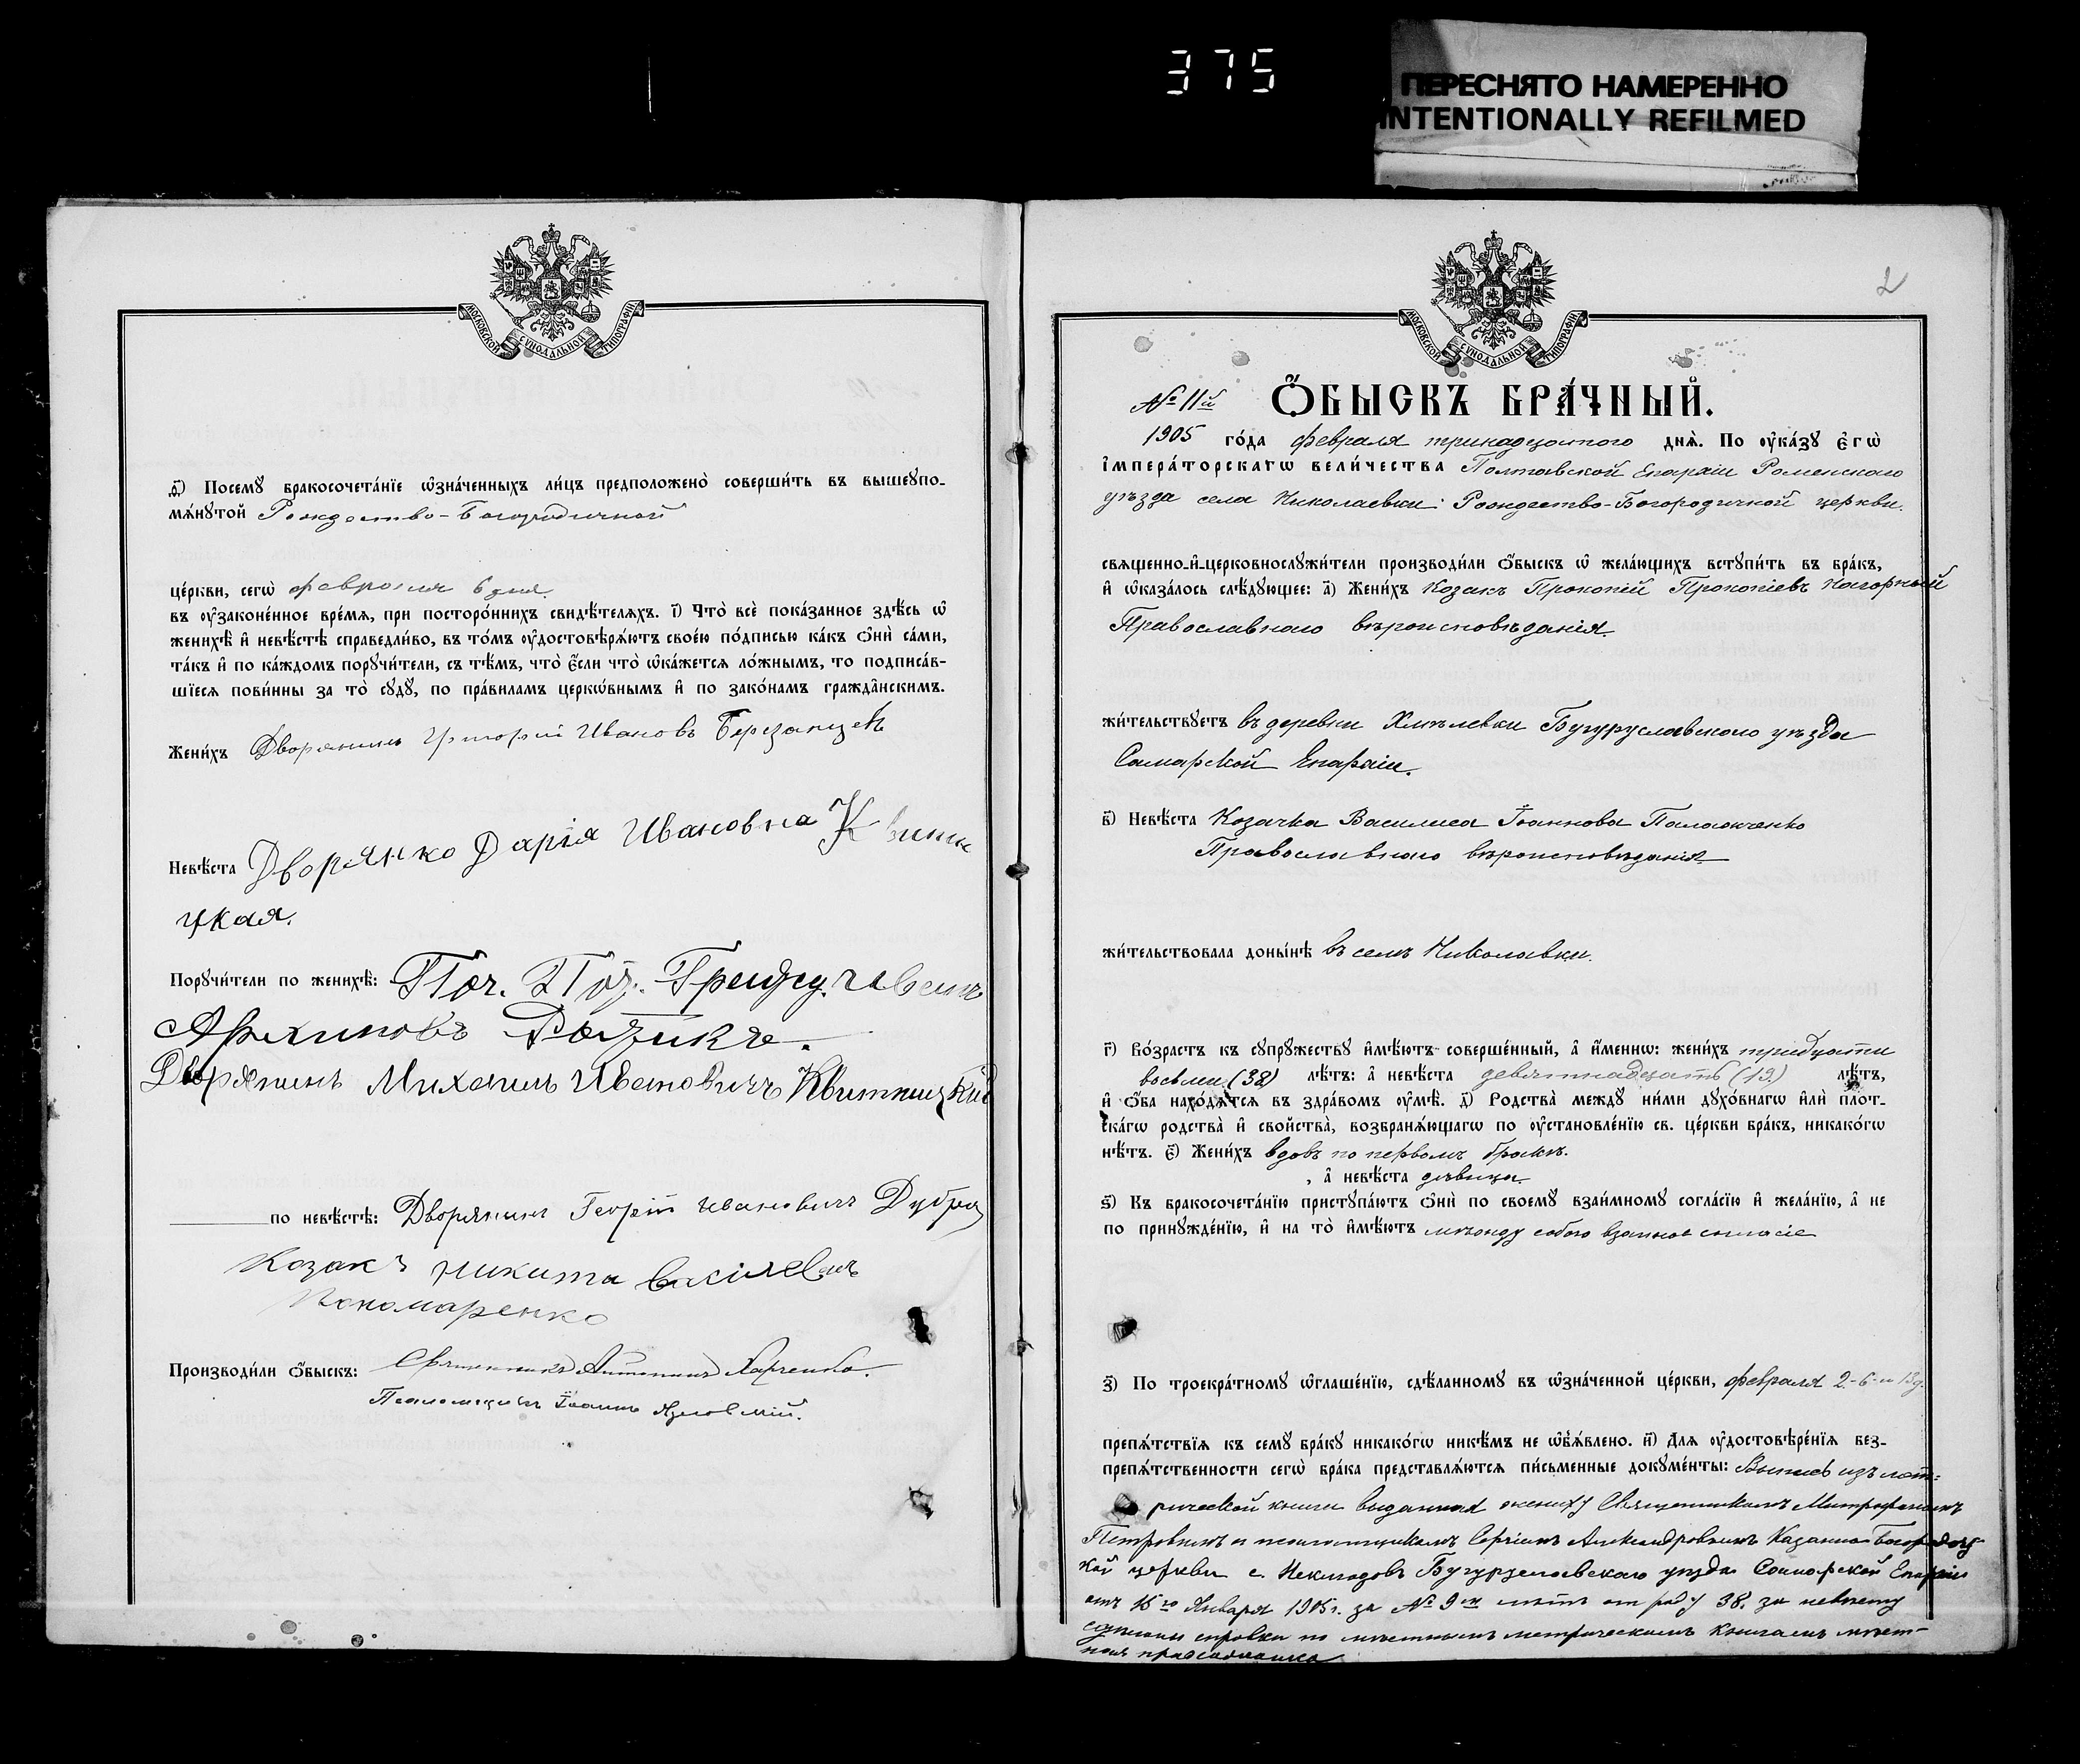 375
ПЕРЕСНЯТО НАМЕРЕННО
INTENTIONALLY REFILMED
МОСКОВСКОЙ СѴНОДАЛЬНОЙ ТИПОГРАФІИ
ѳ҃) Посемꙋ бракосочета́нїе ѡ҆зна́ченныхъ ли́цъ предположено̀ соверши́ть въ вышеꙋпо-
мѧ́нꙋтой Рождество-Богородичной
це́ркви, сегѡ̀ февраля 6 дня
въ ᲂу҆законе́нное вре́мѧ, при посторо́ннихъ свидѣ́телѧхъ. і҃) Что̀ всѐ пока́занное здѣ́сь ѡ҆
женихѣ̀ и҆ невѣ́стѣ справедли́во, въ то́мъ ᲂу҆достовѣрѧ́ютъ свое́ю по́дписью ка́къ ѻ҆нѝ са́ми,
та́къ и҆ по ка́ждомъ порꙋчи́тели, съ тѣ́мъ, что̀ є҆́сли что̀ ѡ҆ка́жетсѧ ло́жнымъ, то подписа́в-
шїесѧ пови́нны за то̀ сꙋдꙋ̀, по пра́виламъ церкѡ́внымъ и҆ по зако́намъ гражда̑нскимъ.
Жени́хъ Дворянинъ Григорій Ивановъ Березанцевъ
Невѣ́ста Дворянка Дарія Ивановна Квитни
цкая.
Порꙋчи́тели по женихѣ̀: Поч. Поч. Гражд. Иванъ
Архиповъ
Дворянинъ Михаилъ Ивановичъ Квитницкій
по невѣ́стѣ: Дворянинъ Георгій Ивановичъ Дубров
Козакъ Никита Васильевъ
Пономаренко
Производи́ли ѻ҆́быскъ: Священникъ Антонинъ Харченко.
Псаломщикъ Іоаннъ
2
МОСКОВСКОЙ СѴНОДАЛЬНОЙ ТИПОГРАФІИ
№ 11й Ѻ҆́БЫСКЪ БРА́ЧНЫЙ.
1905 го́да февраля тринадцатого днѧ̀. По ᲂу҆ка́зꙋ є҆гѡ̀
і҆мпера́торскагѡ вели́чества Полтавской Епархіи Роменскаго
уѣзда села Николаевки Рождество-Богородичной церкви.
свѧщенно-и҆-церковнослꙋжи́тели производи́ли ѻ҆́быскъ ѡ҆ жела́ющихъ встꙋпи́ть въ бра́къ,
и҆ ѡ҆каза́лось слѣ́дꙋющее: а҃) Жени́хъ Козакъ Прокопій Прокопіевъ Нагорный
Православнаго вѣроисповѣданія.
жи́тельствꙋетъ въ деревни Хмѣлевки Бугурусловскаго уѣзда
Самарской Епархіи.
в҃) Невѣ́ста Козачка Василиса Іоаннова
Православнаго вѣроисповѣданія
жи́тельствовала доны́нѣ въ селѣ Николаевки.
г҃) Во́зрастъ къ сꙋпрꙋ́жествꙋ и҆мѣ́ютъ соверше́нный, а҆ и҆́меннѡ: жени́хъ тридцати
восьми (38) лѣ́тъ: а҆ невѣ́ста девятнадцать (19.) лѣ́тъ,
и҆ ѻ҆́ба нахо́дѧтсѧ въ здра́вомъ ᲂу҆мѣ̀. д҃) Родства̀ междꙋ ни́ми дꙋхо́внагѡ и҆лѝ пло́т-
ска́гѡ родства̀ и҆ свойства̀, возбранѧ́ющагѡ по ᲂу҆становле́нїю св. це́ркви бра́къ, никако́гѡ
нѣ́тъ. є҃) Жени́хъ вдовъ по первомъ бракѣ.
, а҆ невѣ́ста дѣвица
ѕ҃) Къ бракосочета́нїю пристꙋпа́ютъ ѻ҆нѝ по своемꙋ̀ взаи́мномꙋ согла́сїю и҆ жела́нїю, а҆ не
по принꙋжде́нїю, и҆ на то̀ и҆мѣ́ютъ между собою взаимное согласіе
з҃) По троекра́тномꙋ ѡ҆глаше́нїю, сдѣ́ланномꙋ въ ѡ҆зна́ченной це́ркви, февраля 2-6-и 13 д.
препѧ́тствїѧ къ семꙋ̀ бра́кꙋ никако́гѡ никѣ́мъ не ѡ҆б̾ѧ́влено. и҃) Длѧ ᲂу҆достовѣре́нїѧ без-
препѧ́тственности сегѡ̀ бра́ка представлѧ́ютсѧ пи́сьменные докꙋме́нты: Выпись изъ мет-
рической книги выданная жениху Священникомъ Митрофаномъ
Петровымъ и псаломщикомъ Сергіемъ Александровымъ Казанско Богородиц
кой церкви с. Бугурусловскаго уѣзда Самарской Епархіи
отъ 15го Января 1905 г. за № 9м лѣтъ от роду 38. за невѣсту
справки по мѣстнымъ метрическимъ книгамъ мѣст-